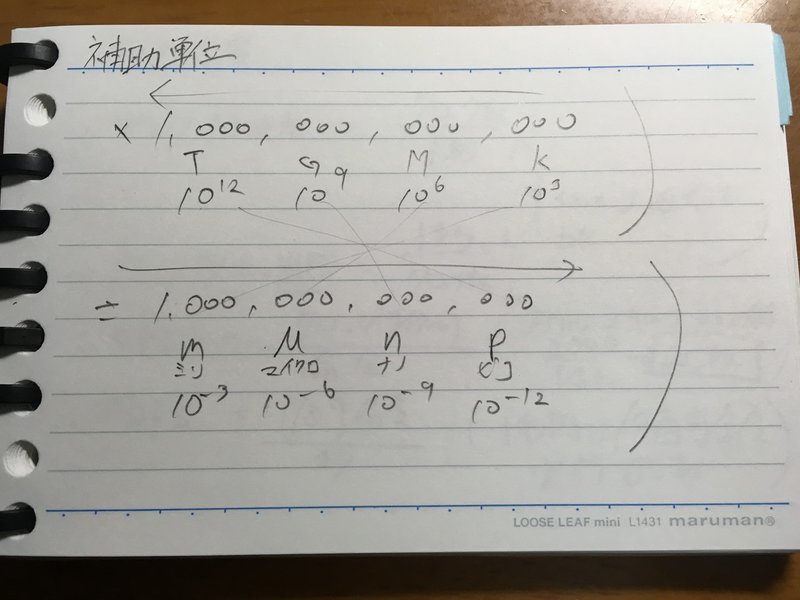 補助単位
× 1,000,000,000,000
T G M k
10¹² 10⁹ 10⁶ 10³
÷ 1,000,000,000,000
m μ n p
ミリ マイクロ ナノ ピコ
10⁻³ 10⁻⁶ 10⁻⁹ 10⁻¹²
LOOSE LEAF mini L1431 maruman®